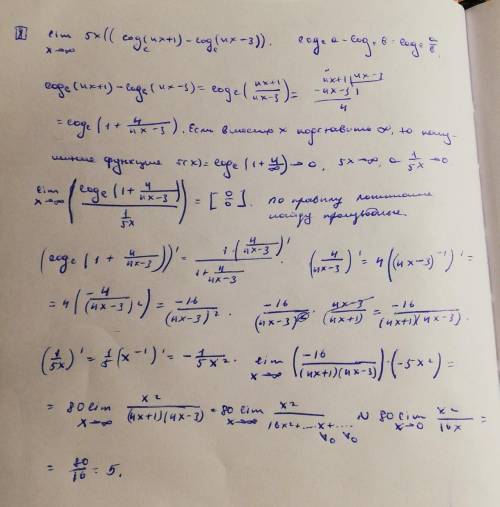 lim x→∞ 5x((log_e(4x+1)-log_e(4x-3)). log_c a-log_c b=log_c a/b.
log_e(4x+1)-log_e(4x-3)=log_e((4x+1)/(4x-3))= 4x+1 | 4x-3 -4x-3 1 4
=log_e(1+4/(4x-3)). Если вместо x подставить ∞, то
функция f(x)=log_e(1+4/∞)→0, 5x→∞, а 1/5x→0
lim x→∞ (log_e(1+4/(4x-3))/(1/5x))=[0/0]. По правилу Лопиталя
найду производные.
(log_e(1+4/(4x-3)))'=1·(4/(4x-3))'/(1+4/(4x-3)). (4/(4x-3))'=4((4x-3)^-1)'=
=4(-4/(4x-3)²)=-16/(4x-3)². -16/(4x-3)²·(4x-3)/(4x+1)=-16/((4x+1)(4x-3)).
(1/5x)'=1/5(x^-1)'=-1/5x². lim x→∞ (-16/((4x+1)(4x-3)))·(-5x²)=
=80 lim x→∞ x²/((4x+1)(4x-3))=80 lim x→∞ x²/(16x²+...x+...) ~ 80 lim x→0 x²/16x=
=80/16=5.